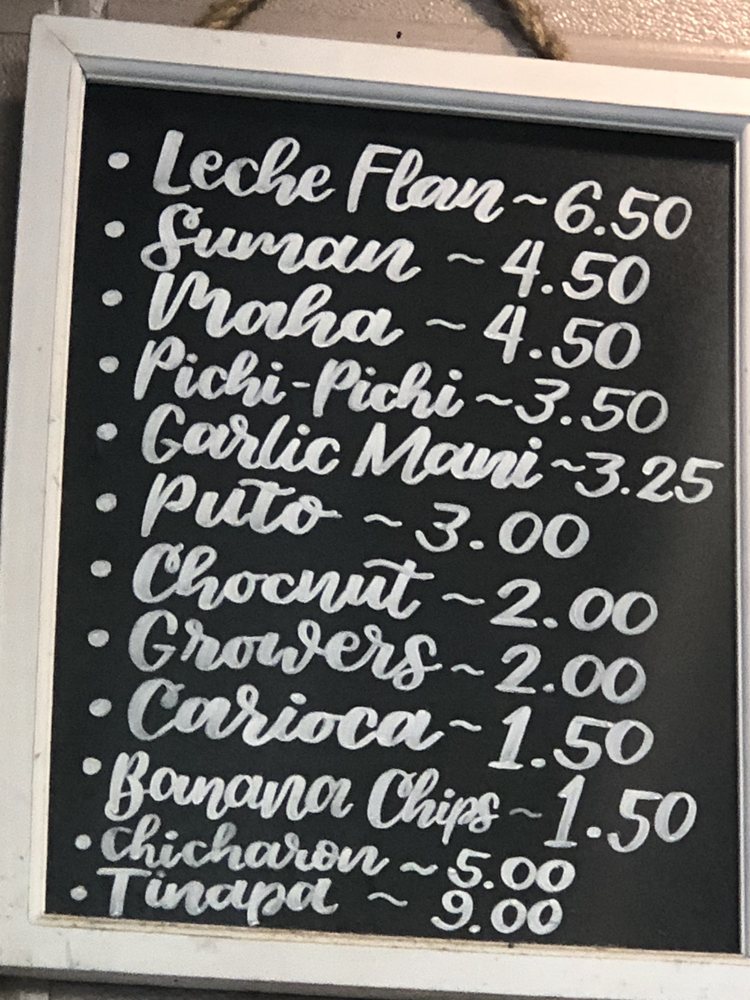 • Leche Flan ~ 6.50
• Suman ~ 4.50
• Maha ~ 4.50
• Pichi-Pichi ~ 3.50
• Garlic Mani ~ 3.25
• Puto ~ 3.00
• Chocnut ~ 2.00
• Growers ~ 2.00
• Carioca ~ 1.50
• Banana Chips ~ 1.50
• Chicharon ~ 5.00
• Tinapa ~ 9.00